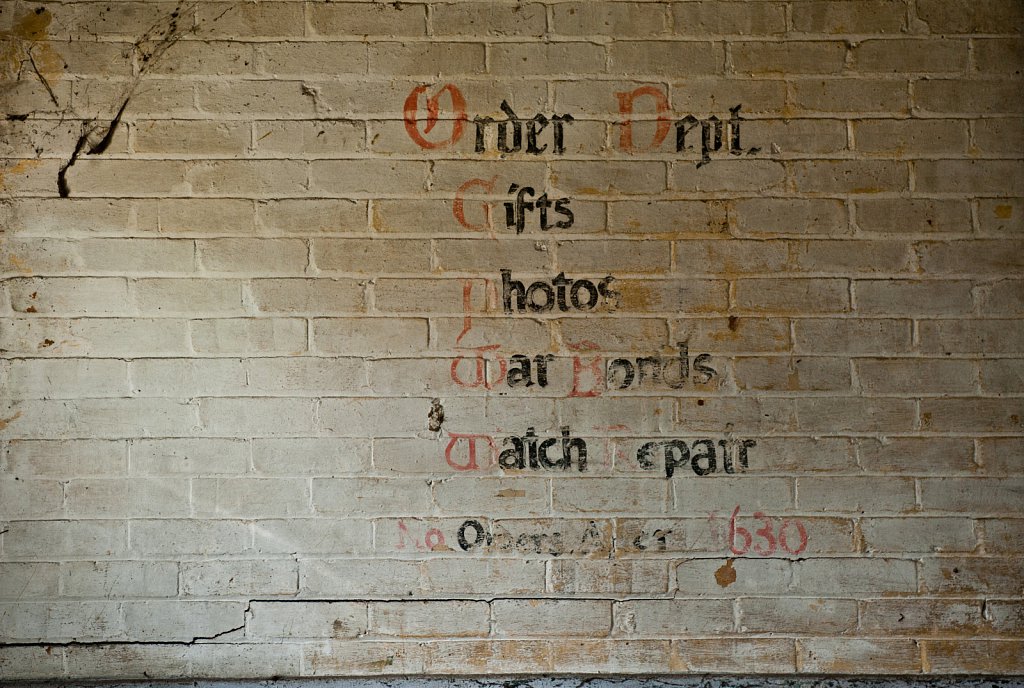 Order Dept.
Gifts
Photos
War Bonds
Watch Repair
No Orders After 1630